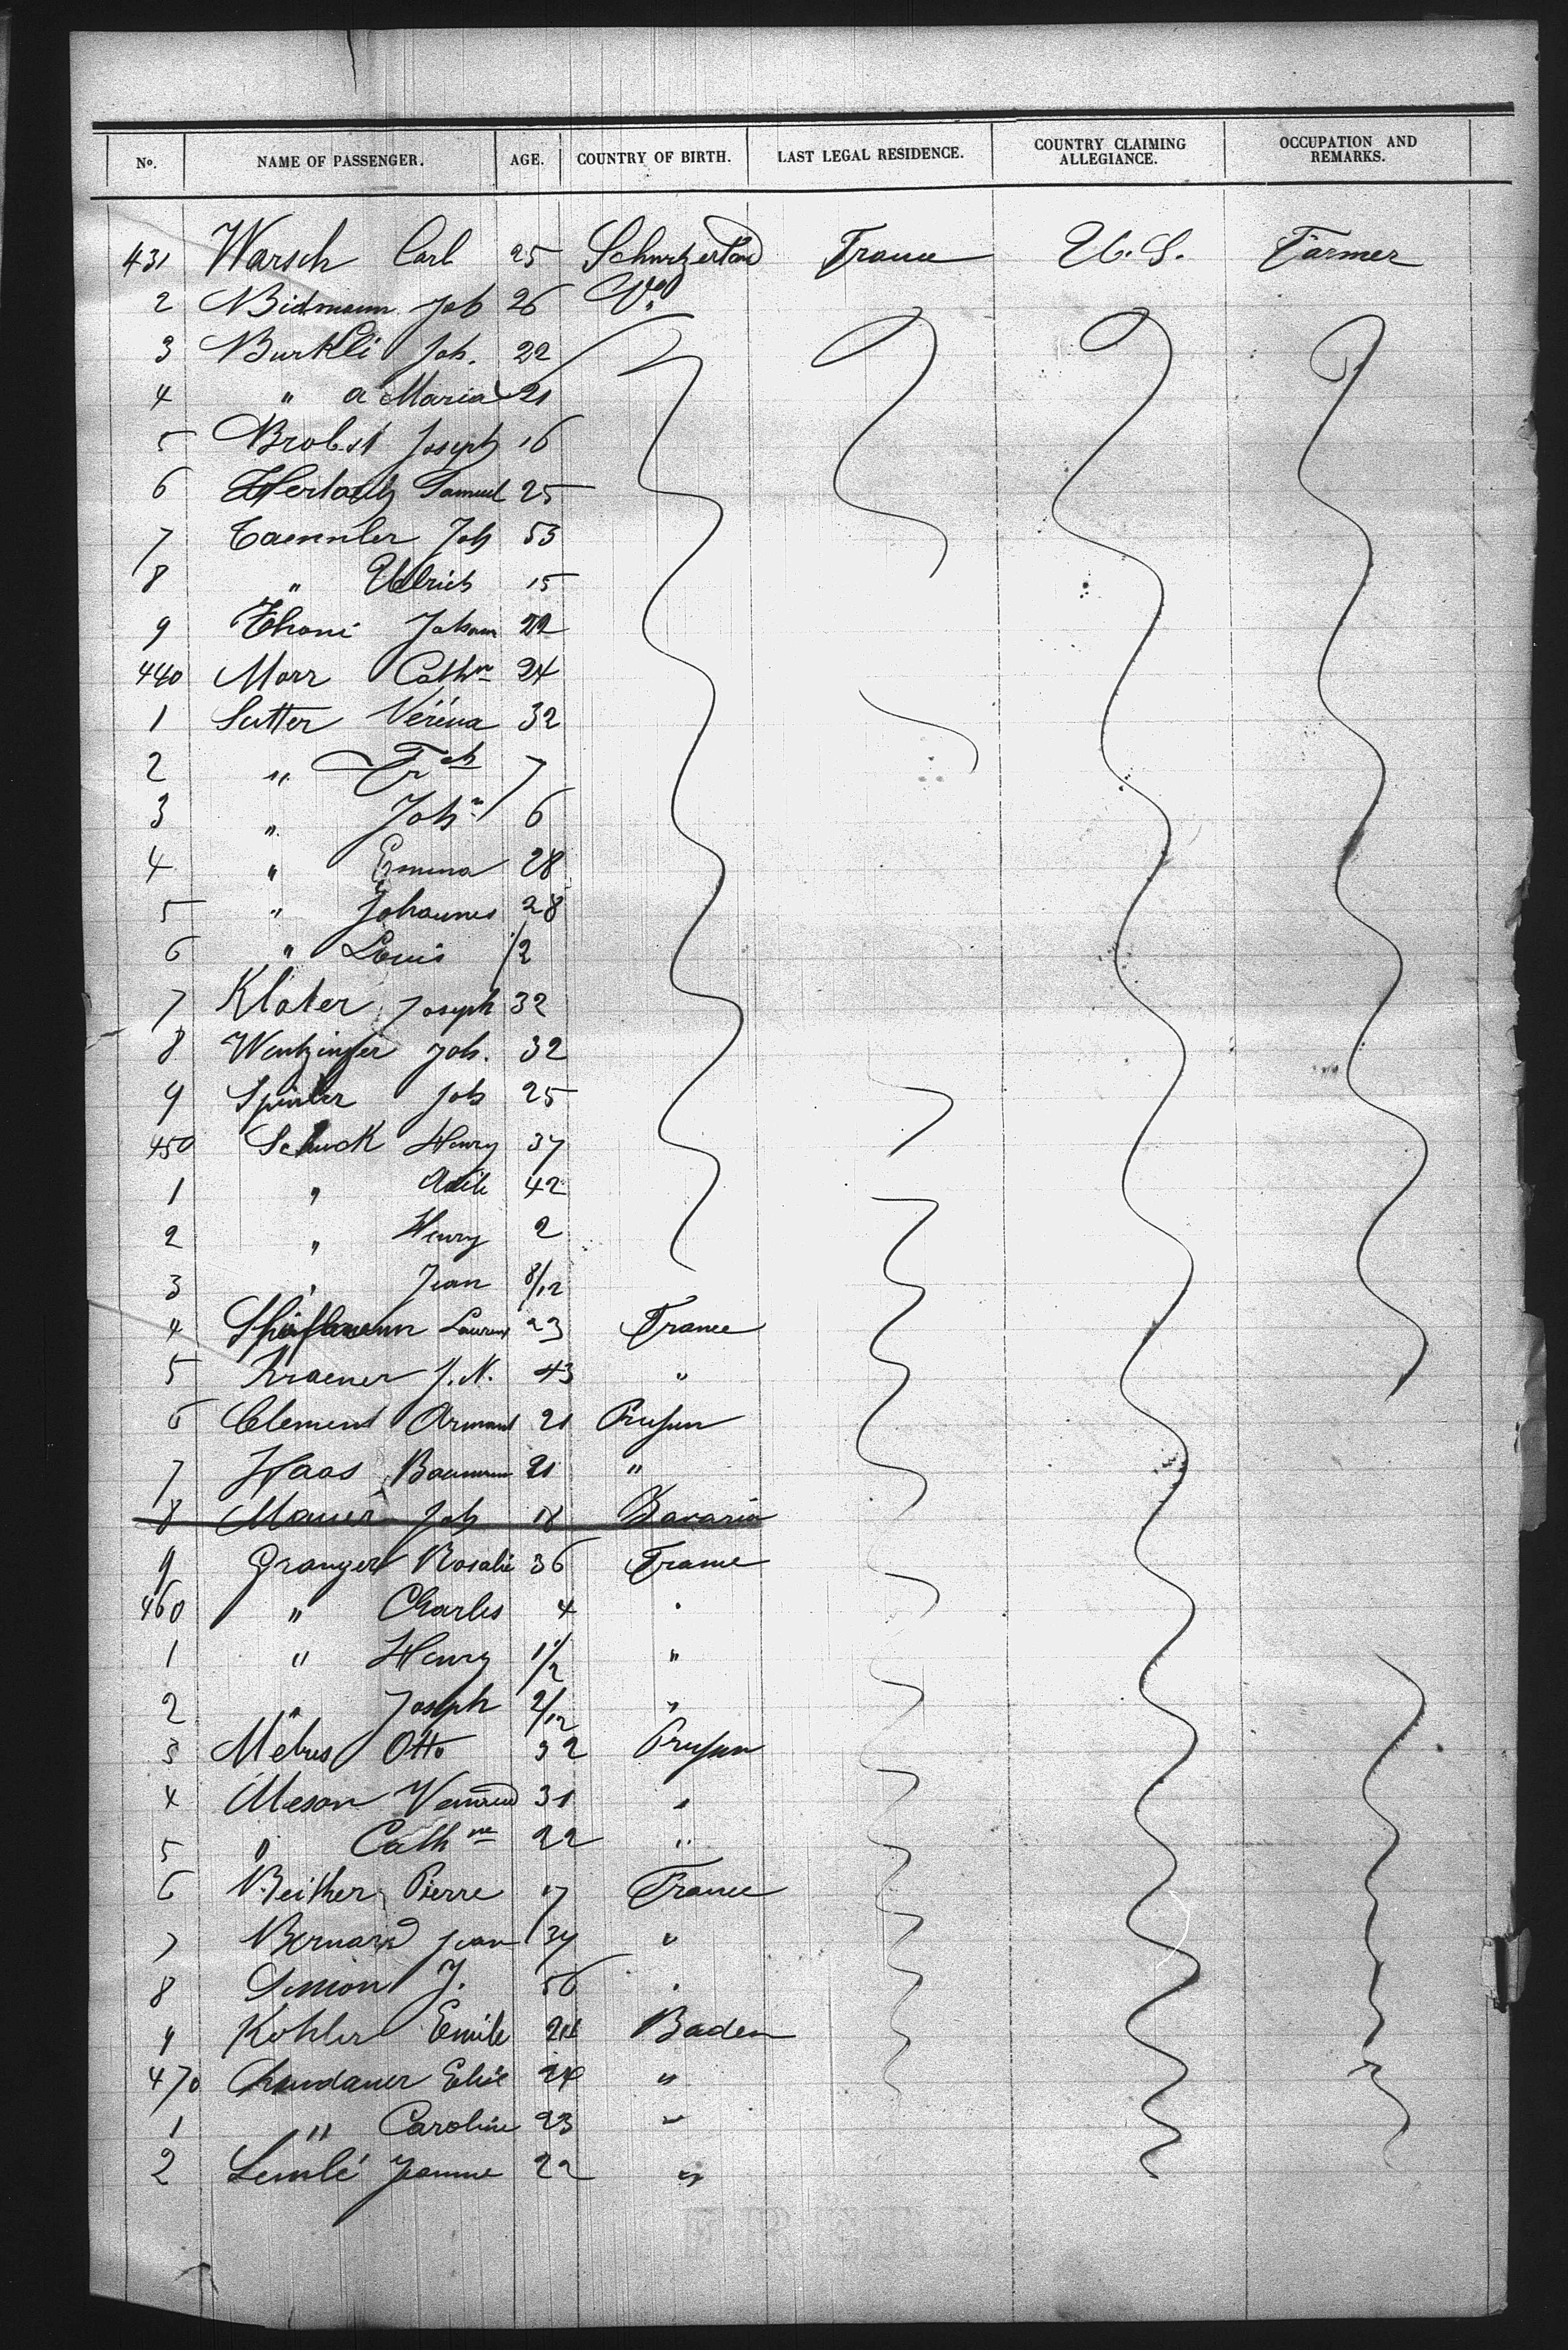 No. NAME OF PASSENGER. AGE. COUNTRY OF BIRTH. LAST LEGAL RESIDENCE. COUNTRY CLAIMING ALLEGIANCE. OCCUPATION AND REMARKS.
431 Warsch Carl 25 France U.S. Farmer
2 Bidmann Joh 26
3 Burkli Joh. 22
4 " a Maria 21
5 Brobst Joseph 16
6 Samuel 25
7 Joh 53
8 " Ullrich 15
9 Thoni Johann 22
440 Morr Cathne 24
1 Sutter Verena 32
2 " Frch 7
3 " John 6
4 " Emma 28
5 " Johannes 28
6 " Louis 2
7 Klater Joseph 32
8 Wentzinger Joh. 32
9 Spinler Joh 25
450 Schuck Henry 37
1 " 42
2 " Henry 2
3 " Jean 8/12
4 Laurent 23 France
5 Kraener J. N. 43 "
6 Clement Armant 21 Prussen
7 Haas 21 "
8 Mauer Joh 18 Bavaria
9 Granger Rosalie 36 France
460 " Charles 4 "
1 " Henry 1 1/2 "
2 " Joseph 2/12 "
3 Mebus Otto 32 Prussen
4 Meson 31 "
5 " Cathne 22 "
6 Beither Pierre 17 France
7 Bernard Jean 34 "
8 Simon J. 56 "
9 Kohler Emile 24 Baden
470 Elise 24 "
1 " Caroline 23 "
2 Lemlé Jeanne 22 "